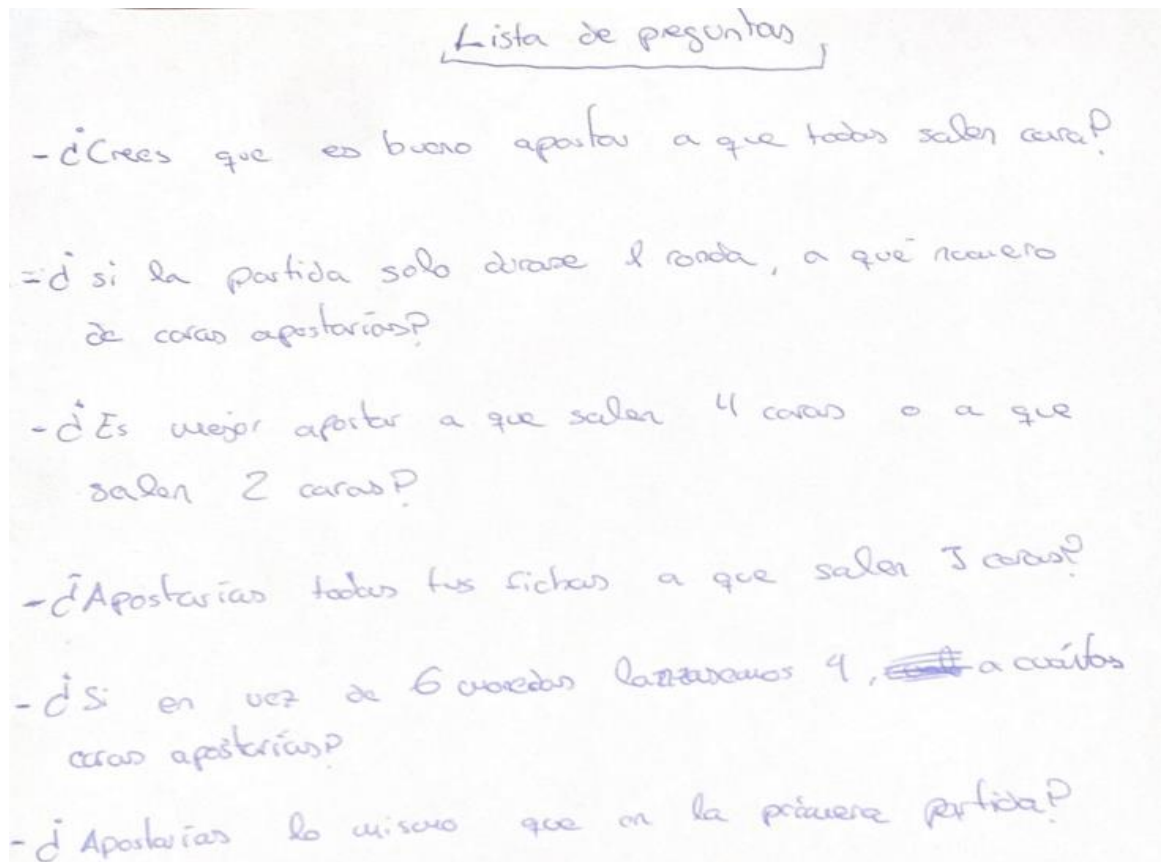 Lista de preguntas
- ¿Crees que es bueno apostar a que todas salen cara?
- ¿si la partida solo durase 1 ronda, a qué número
de caras apostarías?
- ¿Es mejor apostar a que salen 4 caras o a que
salen 2 caras?
- ¿Apostarías todas tus fichas a que salen 5 caras?
- ¿Si en vez de 6 monedas lanzasemos 4, a cuántas
caras apostarías?
- ¿Apostarías lo mismo que en la primera partida?